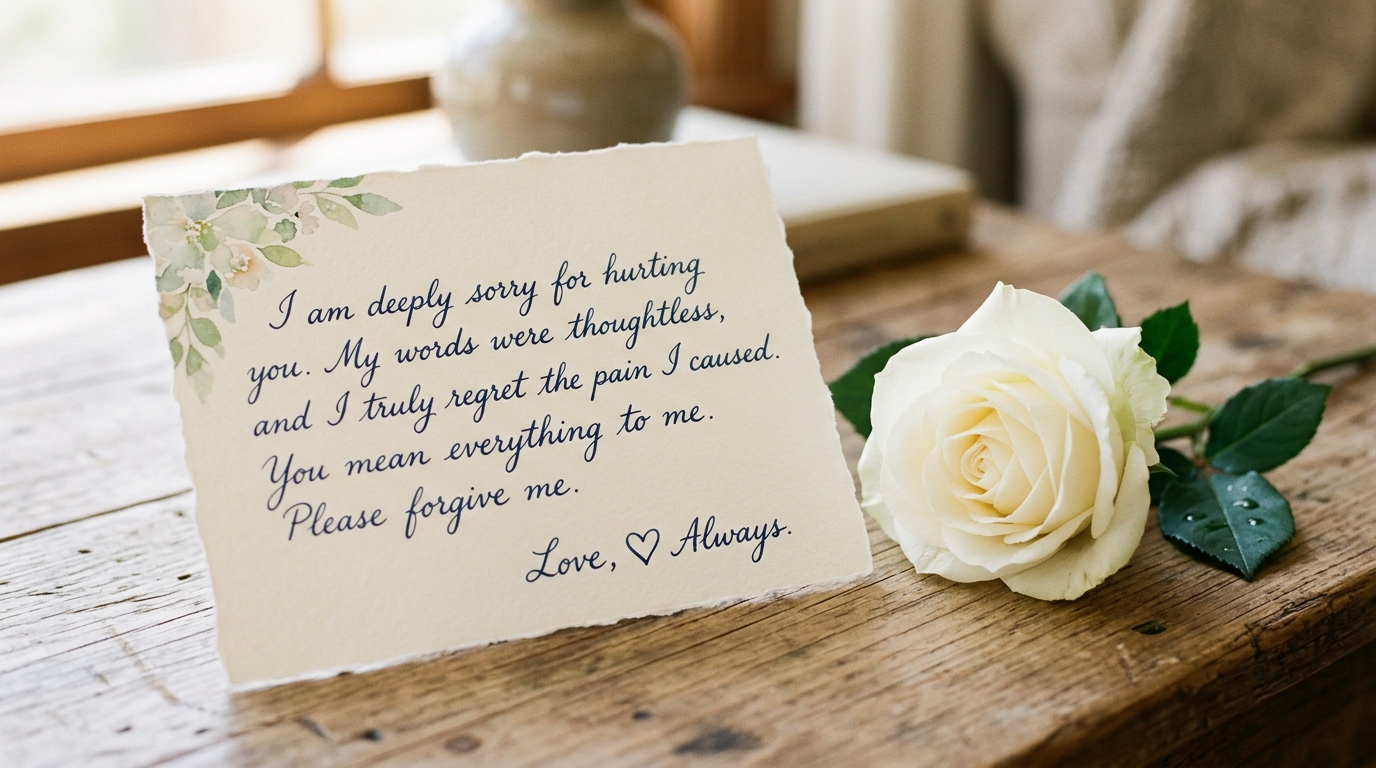 I am deeply sorry for hurting
you. My words were thoughtless,
and I truly regret the pain I caused.
You mean everything to me.
Please forgive me.
Love, ♡ Always.